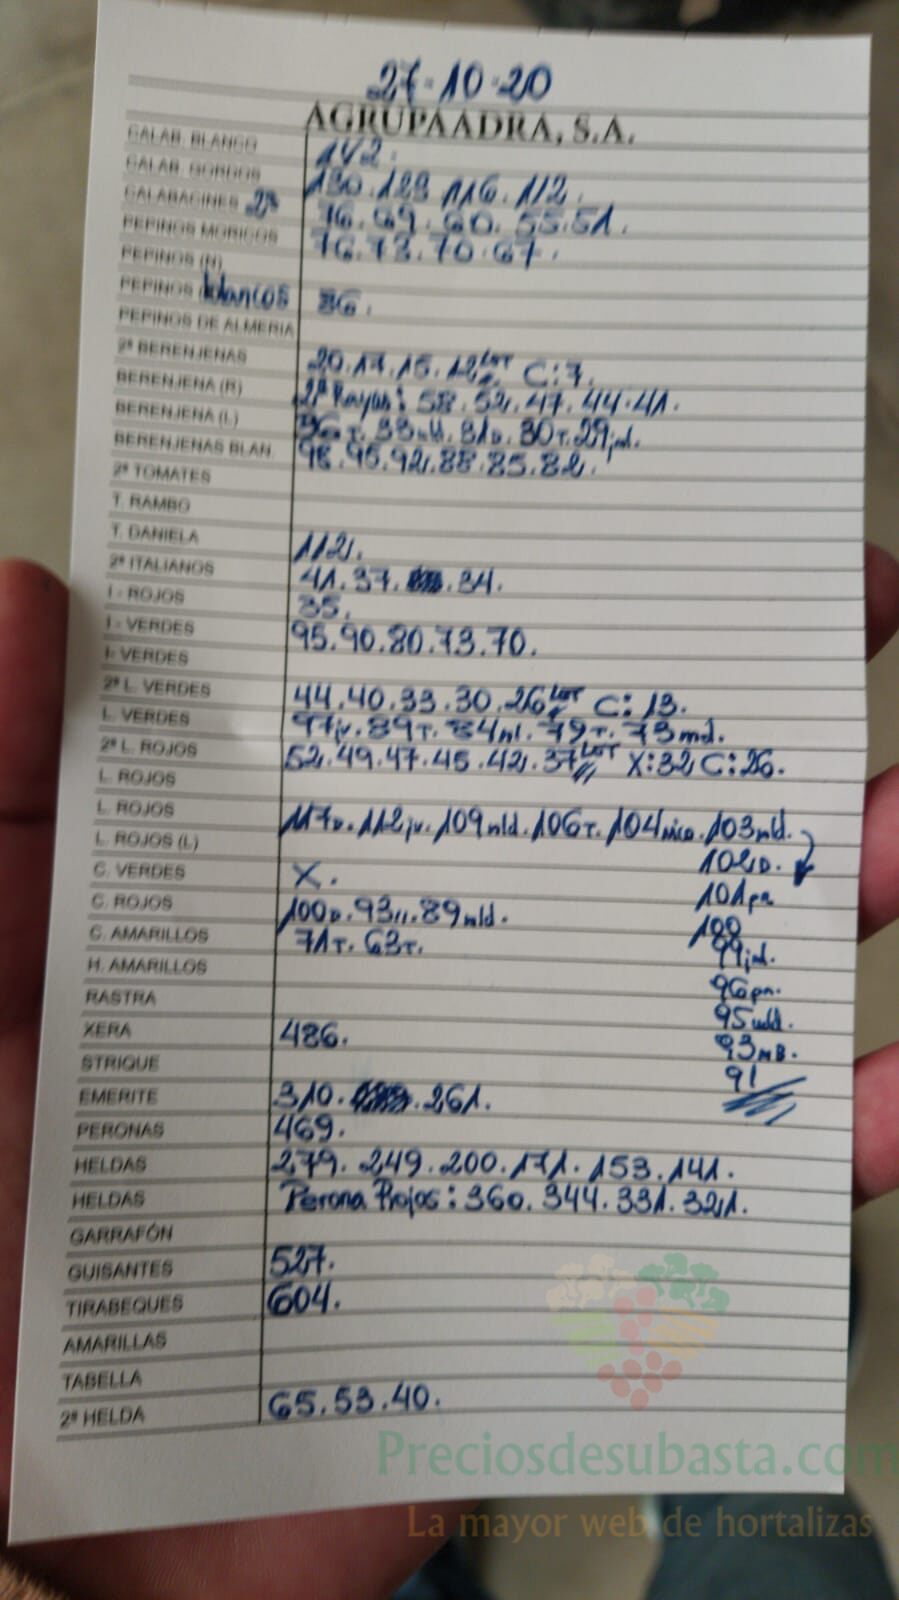 27-10-20
AGRUPAADRA, S.A.
CALAB. BLANCO 142.
CALAB. GORDOS 130.123 116.112.
CALABACINES 2ª 76.69.60.55.51.
PEPINOS MORICOS 76.73.70.67.
PEPINOS (N)
PEPINOS blancos 86.
PEPINOS DE ALMERIA
2ª BERENJENAS 20.17.15.12 LOT C:7.
BERENJENA (R) 2ª Rayas: 58.52.47.44.41.
BERENJENA (L) 36T. 33mld. 31D. 30T. 29jd.
BERENJENAS BLAN. 98.95.92.88.85.82.
2ª TOMATES
T. RAMBO
T. DANIELA 112.
2ª ITALIANOS 41.37. .34.
I - ROJOS 35.
I - VERDES 95.90.80.73.70.
I- VERDES
2ª L. VERDES 44.40.33.30.26 LOT C: 13.
L. VERDES 97jv. 89T. 84ml. 79T. 73md.
2ª L. ROJOS 52.49.47.45.42.37 LOT X:32 C:26.
L. ROJOS
L. ROJOS 117D. 112jv. 109mld. 106T. 104nico. 103mld.
L. ROJOS (L) 102D.
C. VERDES X. 101pn
C. ROJOS 100D. 93 11. 89mld. 100
C. AMARILLOS 71T. 63T. 99jd.
H. AMARILLOS 96pn.
RASTRA 95mld.
XERA 486. 93MB.
STRIQUE 91
EMERITE 310. .261.
PERONAS 469.
HELDAS 279. 249.200.171.153.141.
HELDAS Perona Rojos: 360.344.331.321.
GARRAFÓN
GUISANTES 527.
TIRABEQUES 604.
AMARILLAS
TABELLA
2ª HELDA 65.53.40.
Preciosdesubasta.com
La mayor web de hortalizas